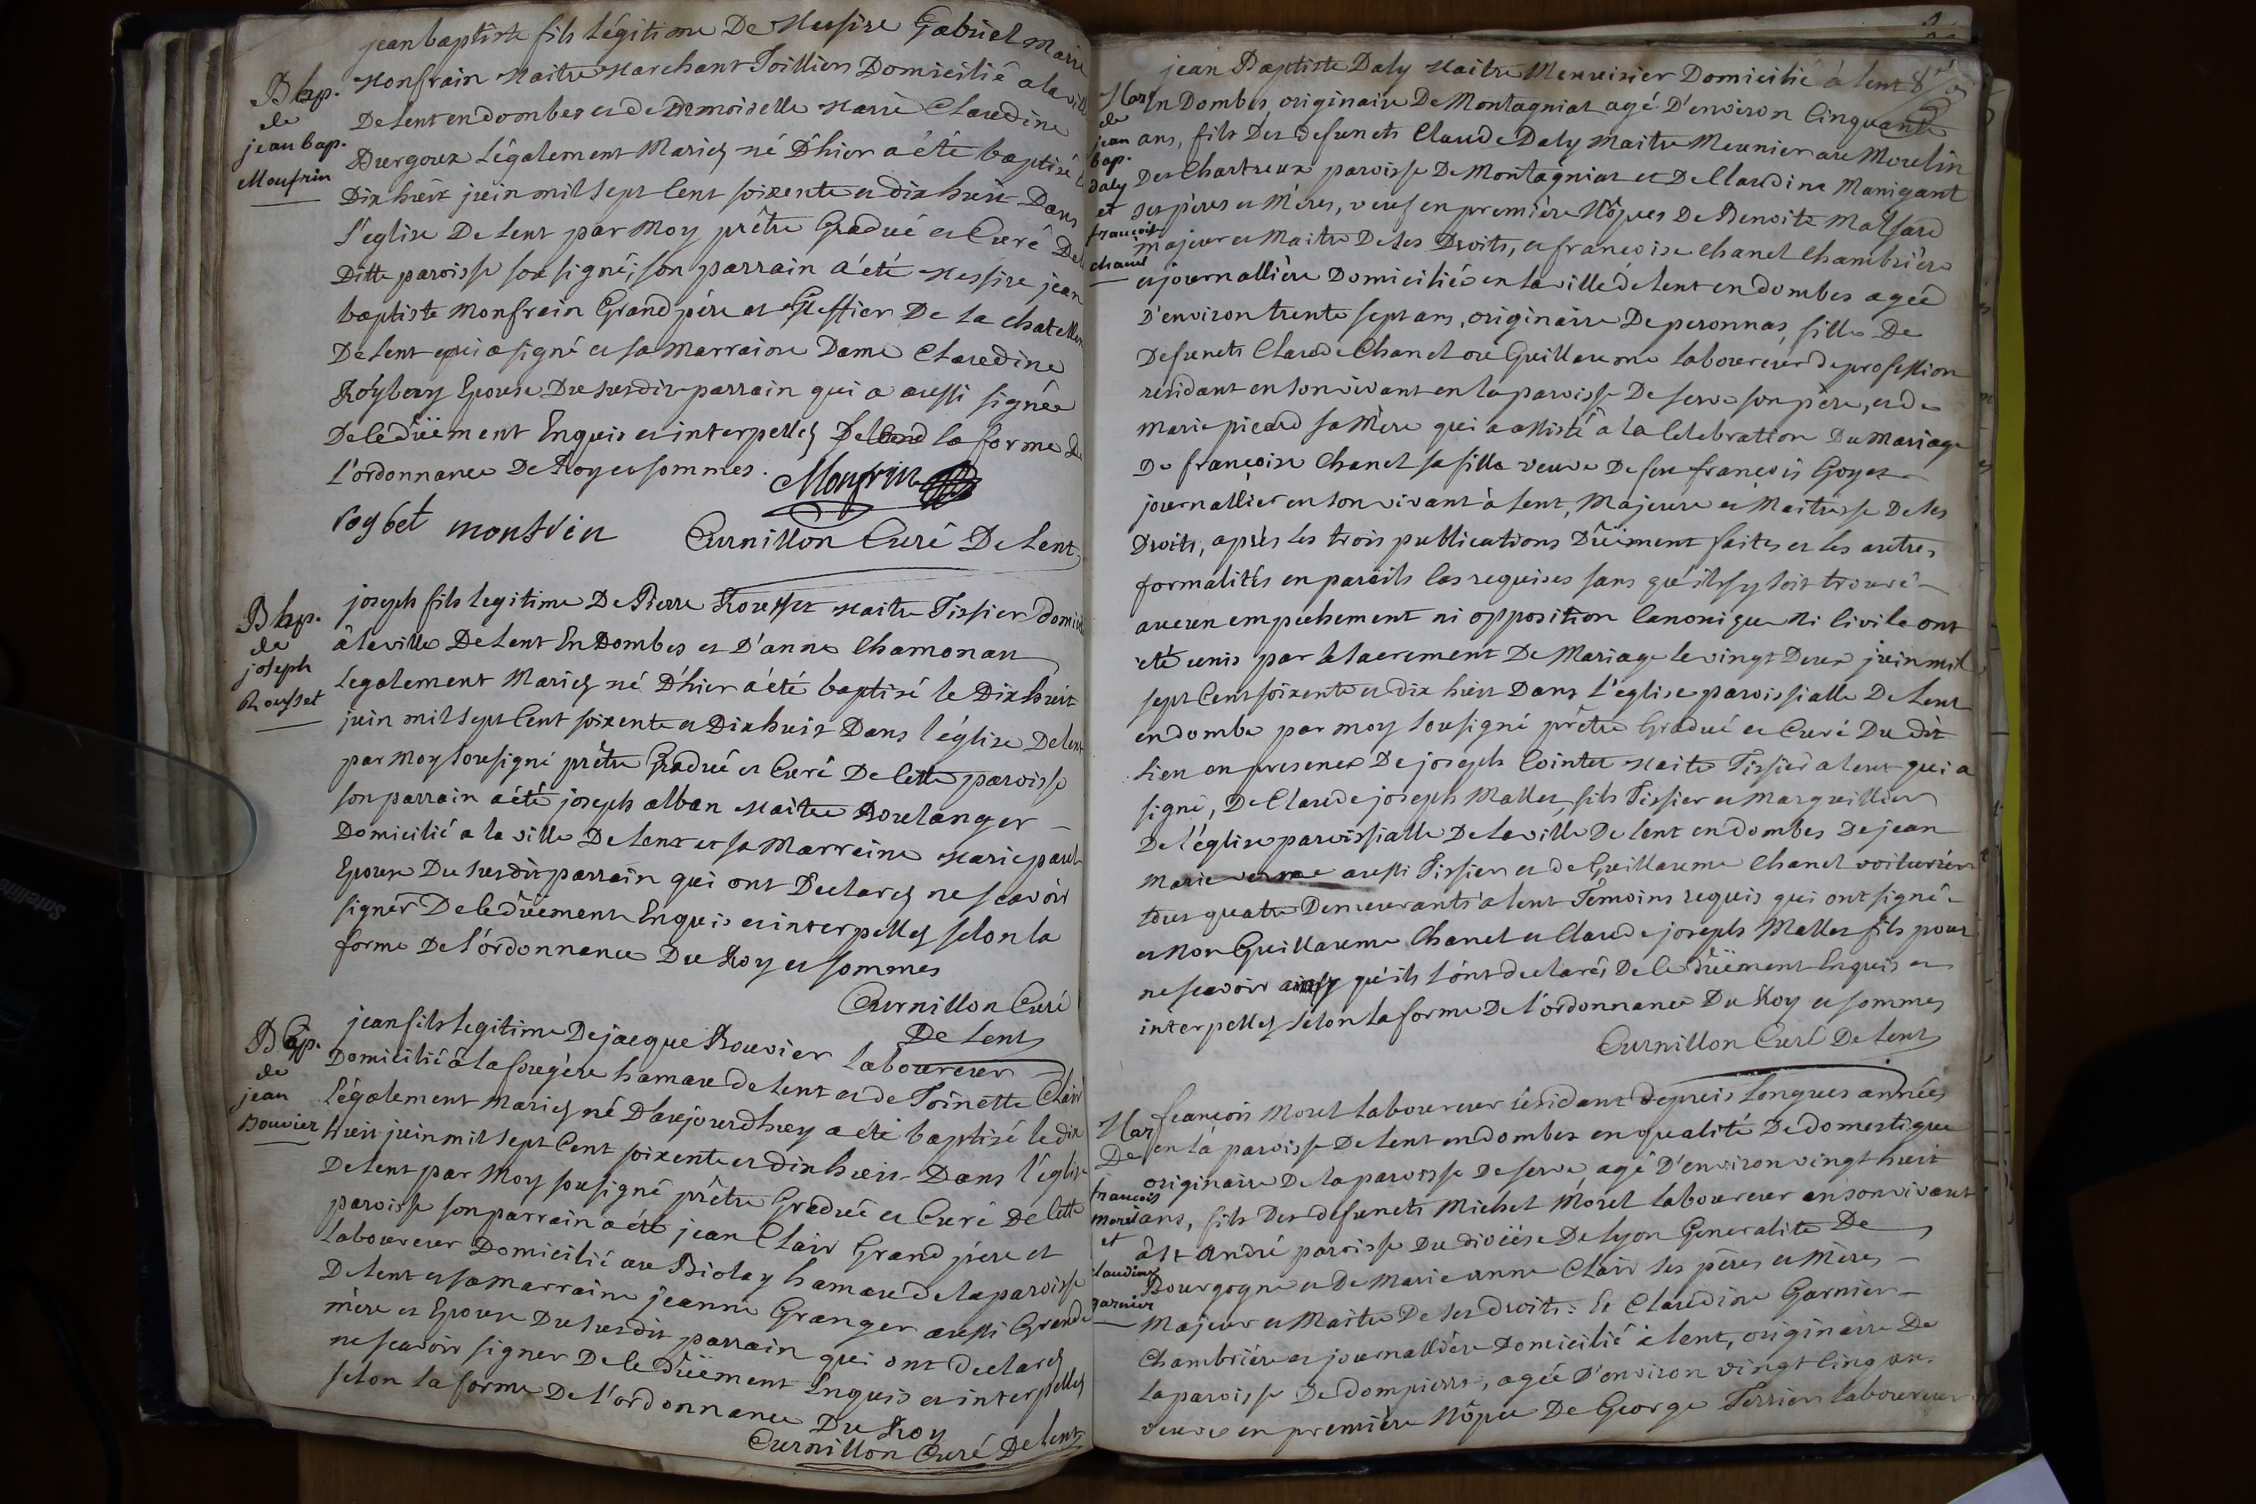 jean baptiste fils légitime De Messire Gabriel Marie
Bap.
de
jean bap.
Monfrin
Monfrain Maitre Marchant Toillier Domicilié a la ville
De Lent en dombes et de Demoiselle Marie Claudine
Durgoux Légalement Mariez né D'hier a été baptisé le
Dix huit juin mil sept Cent soixente et dix huit Dans
l'eglise De Lent par Moy prêtre Gradué et Curé De
Ditte paroisse sousigné; son parrain a été Messire jean
baptiste Monfrain Grand père et Greffier De la chatellenie
De Lent qui a signé et sa Marraine Dame Claudine
Roybery Epouse Du susdit parrain qui a aussi signée
De ce dûement Enquis et interpellez la forme de
L'ordonnance De Roy et sommes. Monfrin
roybet monfrin Curnillon Curé De Lent
Bap.
de
joseph
Rousset
joseph fils legitime De Pierre Rousset Maitre Tissier domicilié
â la ville De Lent En Dombes et D'anne Chamonau
Légalement Mariez né D'hier a été baptisé le Dix huit
juin mil sept Cent soixente et Dix huit Dans l'église De Lent
par Moy sousigné prêtre Gradué et Curé De Cette paroisse
son parrain a été joseph alban Maitre Boulanger
Domicilié a la ville De Lent et sa Marreine Marie
Epouse Du susdit parrain qui ont Declarez ne scavoir
signer De ce dûement Enquis et interpellez selon la
forme De l'ordonnance Du Roy et sommes
Curnillon Curé
De Lent
Bap.
de
jean
Bouvier
jean fils legitime De jacque Bouvier laboureur
Domicilié â la fougère hamau de Lent et de Toinette Clair
Légalement Mariez né D'aujourdhuy a été baptisé le dix
huit juin mil sept Cent soixente et dix huit Dans l'église
De Lent par Moy sousigné prêtre Gradué et Curé De Cette
paroisse son parrain a été jean Clair Grand père et
laboureur Domicilié au Biolay hamau de la paroisse
De Lent et sa marraine jeanne Granger aussi Grande
mère et Epouse Du susdit parrain qui ont declarez
ne scavoir signer De ce dûement Enquis et interpellez
selon la forme De l'ordonnance Du Roy
Curnillon Curé De Lent
jean Baptiste Daly Maitre Meunier Domicilié à Lent
Mar
de
jean
bap.
Daly
et
françoise
chanel
En Dombes, originaire De Montagniat agé D'environ Cinquante
ans, fils Des defuncts Claude Daly Maitre Meunier au Moulin
Des Chartreux paroisse De Montagniat et De Claudine Manigant
ses pères et Mères, veuf en première Nôpces De Benoite
majeur et Maitre De ses Droits, et francoise Chanel Chambrière
et journallière Domiciliée en la ville de Lent en dombes agée
D'environ trente sept ans, originaire De peronnas, fille De
Defuncts Claude Chanel ou Guillaume laboureur de profession
residant en son vivant en la paroisse De Serva son père, et de
marie picard sa Mère qui a assisté â la Celebration Du Mariage
De françoise Chanel sa fille veuve De feu françois Goyet
journallier en son vivant à Lent, Majeure et Maitresse De ses
Droits, après les trois publications Dûement faites et les autres
formalités en pareils Cas requises sans qu'il s'y soit trouvé
aucun empechement ni opposition Canonique Ni Civile ont
été unis par le Sacrement De Mariage le vingt Deux juin mil
sept Cent soixente et dix huit Dans l'église paroissialle De Lent
en dombe par moy sousigné prêtre Gradué et Curé Du dit
Lieu en presence De joseph Cointet Maitre Tissier a Lent qui a
signé, De Claude joseph Mallet fils Tissier et Marguillier
De l'église paroissialle De la ville De Lent en dombes De jean
Marie aussi Tissier et de Guillaume Chanel voiturier
tous quatre Demeurants à Lent Têmoins requis qui ont signé
et Non Guillaume Chanel et Claude joseph Mallet fils pour
ne scavoir ainsy qu'ils l'ont declarés De ce dûement Enquis et
interpellez selon la forme De l'ordonnance Du Roy et sommes
Curnillon Curé De Lent
Mar
De
françois
morel
et
claudine
garnier
françois Morel laboureur residant depuis longues années
en la paroisse De Lent en dombes en qualité De domestique
originaire De la paroisse De Serva, agé D'environ vingt huit
ans, fils Des defuncts Michel Morel laboureur en son vivant
â St André paroisse Du diocèse De Lyon Generalité De
Bourgogne et De Marie anne Clair ses pères et Mères
Majeur et Maitre De ses droits: Et Claudine Garnier
Chambrière et journallière Domicilié à Lent, originaire De
la paroisse De dompierre, agée D'environ vingt Cinq ans
veuve en première Nôpce De George Terrier laboureur